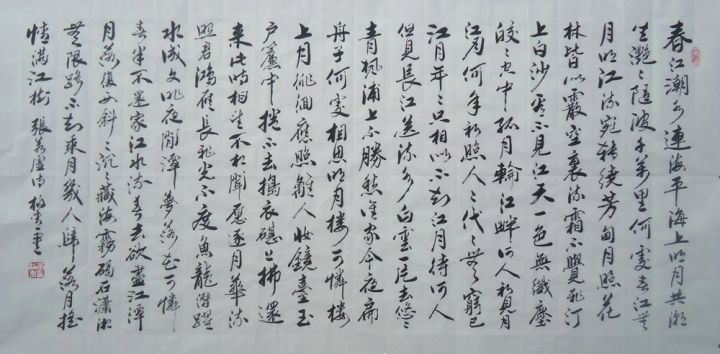 春江潮水連海平海上明月共潮
生灔々隨波千萬里何處春江無
月明江流宛轉繞芳甸月照花
林皆似霰空裏流霜不覺飛汀
上白沙看不見江天一色無纖塵
皎々空中孤月輪江畔何人初見月
江月何年初照人々代々無窮已
江月年々只相似不知江月待何人
但見長江送流水白雲一片去悠々
青楓浦上不勝愁誰家今夜扁
舟子何處相思明月樓可憐樓
上月徘徊應照離人妝鏡臺玉
户簾中捲不去擣衣砧上拂還
來此時相望不相聞願逐月華流
照君鴻雁長飛光不度魚龍潛躍
水成文昨夜閒潭夢落花可憐
春半不還家江水流春去欲盡江潭
月落復西斜々沉々藏海霧碣石瀟湘
無限路不知乘月幾人歸落月搖
情滿江樹 張若虛詩